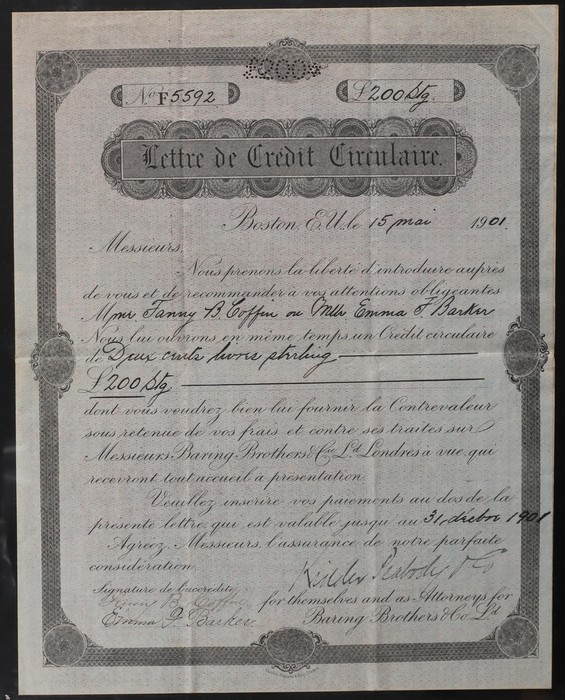 £200&
No. F5592 £200 Stg.
Lettre de Crédit Circulaire.
Boston, E.U. le 15 mai 1901.
Messieurs,
Nous prenons la liberté d'introduire auprès
de vous et de recommander à vos attentions obligeantes
Mme Fanny B. Coffin ou Mlle Emma F. Barker
Nous lui ouvrons en même temps un Crédit circulaire
de Deux cents livres sterling
£200 Stg.
dont vous voudrez bien lui fournir la Contrevaleur
sous retenue de vos frais et contre ses traites sur
Messieurs Baring Brothers & Cie Ld. Londres à vue, qui
recevront tout accueil à présentation.
Veuillez inscrire vos paiements au dos de la
présente lettre, qui est valable jusqu'au 31 décbre 1901
Agréez, Messieurs, l'assurance de notre parfaite
considération.
Kidder Peabody & Co
Signature de l'accréditée
Fanny B. Coffin
for themselves and as Attorneys for
Emma F. Barker.
Baring Brothers & Co. Ld.